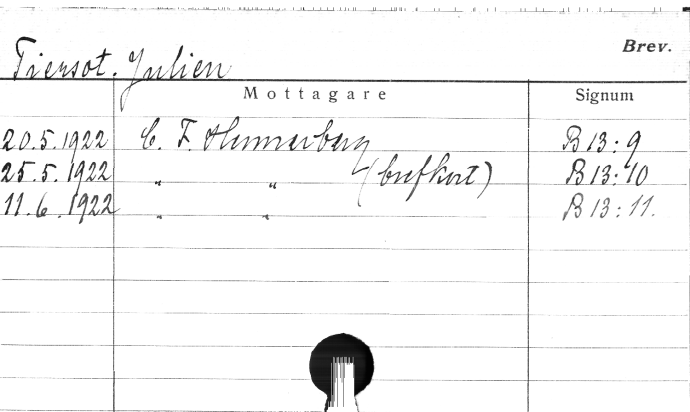 Brev.
Tiersot. Julien
Mottagare Signum
20.5.1922 C. F. Hennerberg B 13:9
25.5.1922 " " (brefkort) B 13:10
11.6.1922 " " B 13:11.